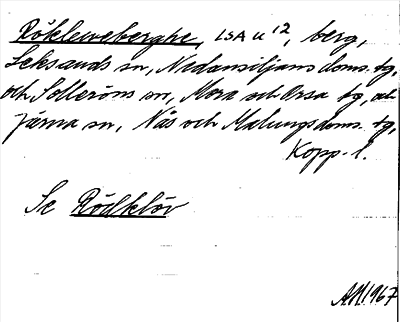 Röklewebergke, LSA u 12, berg,
Leksands sn, Nedansiljans doms. tg,
och Solleröns sn, Mora och Orsa tg, och
Järna sn, Nås och Malungs doms. tg,
Kopp. l.
Se Rödklöv
AM 1967